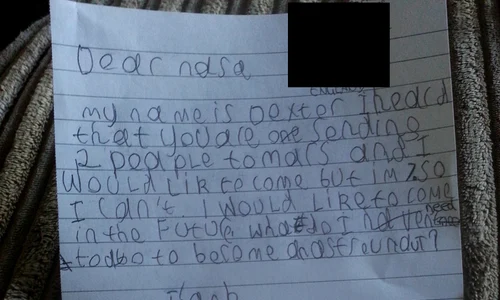 Dear nasa
ENGLAND
my name is Dexter I heard
that you are sending
2 people to mars and I
would like to come but im 7 so
I can't. I would like to come
in the future what do I need
to do to become an astronaut?